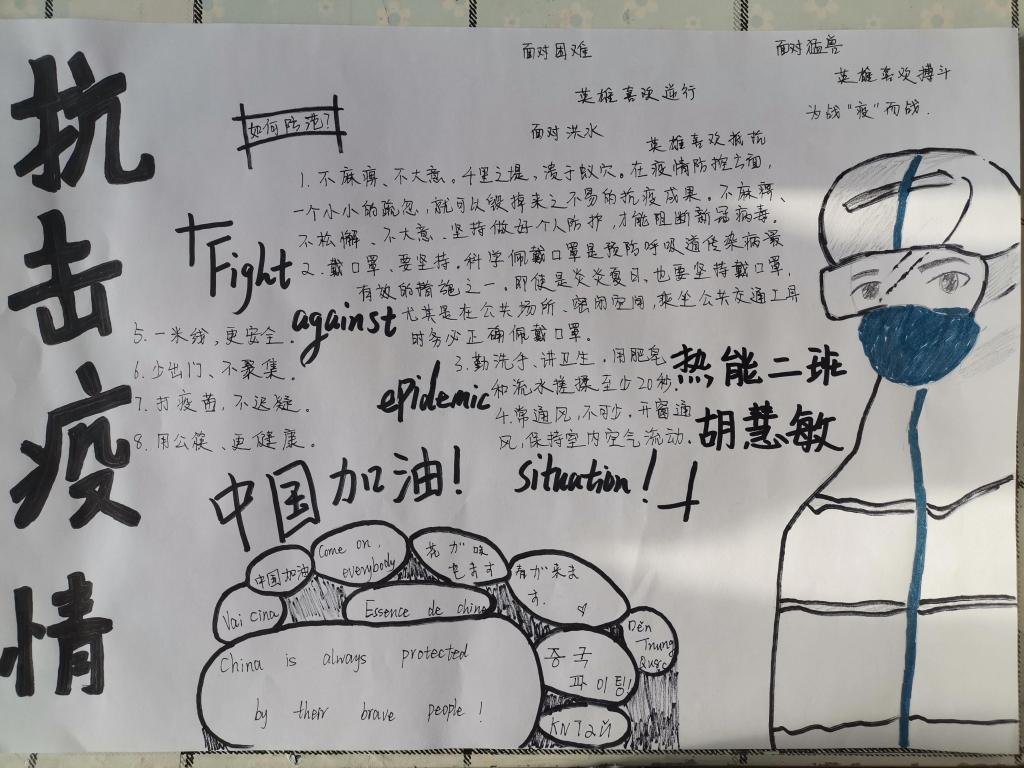 抗击疫情
面对困难
面对猛兽
英雄喜欢搏斗
英雄喜欢逆行
为战“疫”而战.
面对洪水
英雄喜欢抵抗
如何防范?
1. 不麻痹、不大意。千里之堤,溃于蚁穴。在疫情防控方面,
一个小小的疏忽,就可以毁掉来之不易的抗疫成果。不麻痹、
不松懈、不大意、坚持做好个人防护,才能阻断新冠病毒。
2. 戴口罩、要坚持。科学佩戴口罩是预防呼吸道传染病最
有效的措施之一,即使是炎炎夏日,也要坚持戴口罩,
尤其是在公共场所、密闭空间,乘坐公共交通工具
时务必正确佩戴口罩。
3. 勤洗手、讲卫生,用肥皂
和流水搓揉至少20秒.
4. 常通风,不可少,开窗通
风,保持室内空气流动.
5. 一米线,更安全.
6. 少出门、不聚集.
7. 打疫苗,不迟疑.
8. 用公筷、更健康.
Fight
against
epidemic
situation!
热能二班
胡慧敏
中国加油!
中国加油
Come on,
everybody
花が咲
春が来ま
す.
Vai cina
Essence de chine
China is always protected
by their brave people!
중국
파이팅!
Đến
Trung
Quốc
Китай